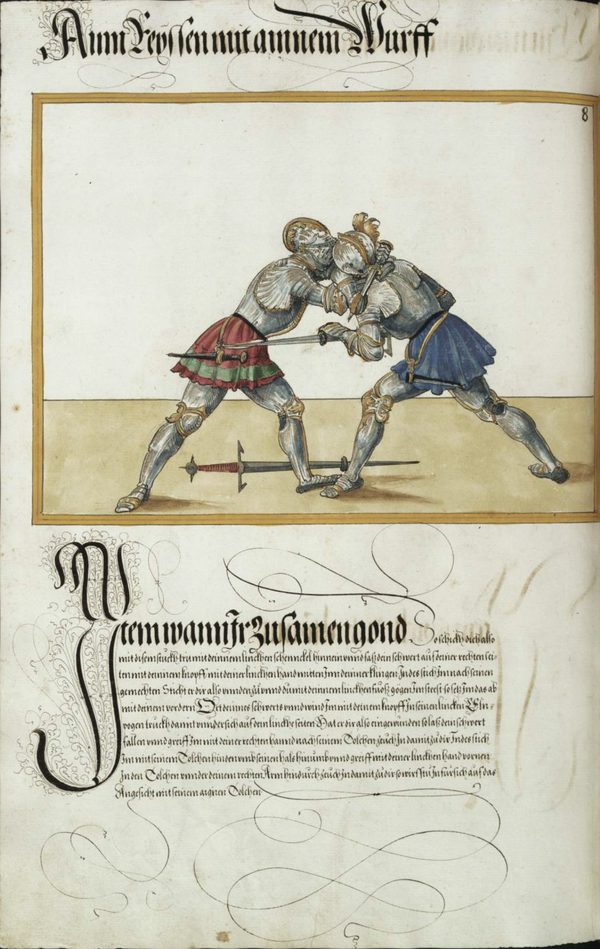 Ainn Reyssen mit ainnem Wurff
8
Item wann Jr Zusamen gond So schickh dich also
mit disem stuckh trit mit deinnem linckhen schennckel hinnein unnd faß dein schwert auf deiner rechten sei-
ten mit deinnem knopff mit deiner linckhen hannd mitten Jnn dein nerr klingen Jndes stich Jm nach seinen
gemechten Sticht er dir also unnden zů unnd du mit deinnem linckhen fůoß gegen Jm steest so setz Jm das ab
mit deinem vordern Ort deinnes schwerts unnd wind Jm mit deinem knopff Jn seinen lincken Eln-
pogen truckh damit von der sich auf dein linckhe seiten Hat er dir also eingewunden so laß dein schwert
fallen unnd greiff Jm mit deiner rechten hannd nach seinem Dolchen zeuch Jn damit zů dir Jndes stich
Jm mit seinem Dolchen hinden umb seinen hals hinumb unnd greiff mit deiner linckhen hand vornen
Jn den Dolchen unnder deinem rechten Arm hindurch zeuch Jn damit zů dir so wirfstu Jn für sich auf das
Angesicht mit seinem aignen Dolchen